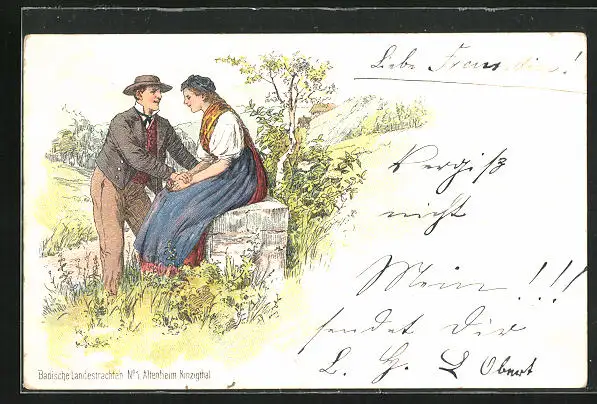 Liebe Freundin!
Vergiß
nicht
Mein!!!
sendet Dir
L. H. L Obert
Badische Landestrachten No 1 Altenheim Kinzigthal